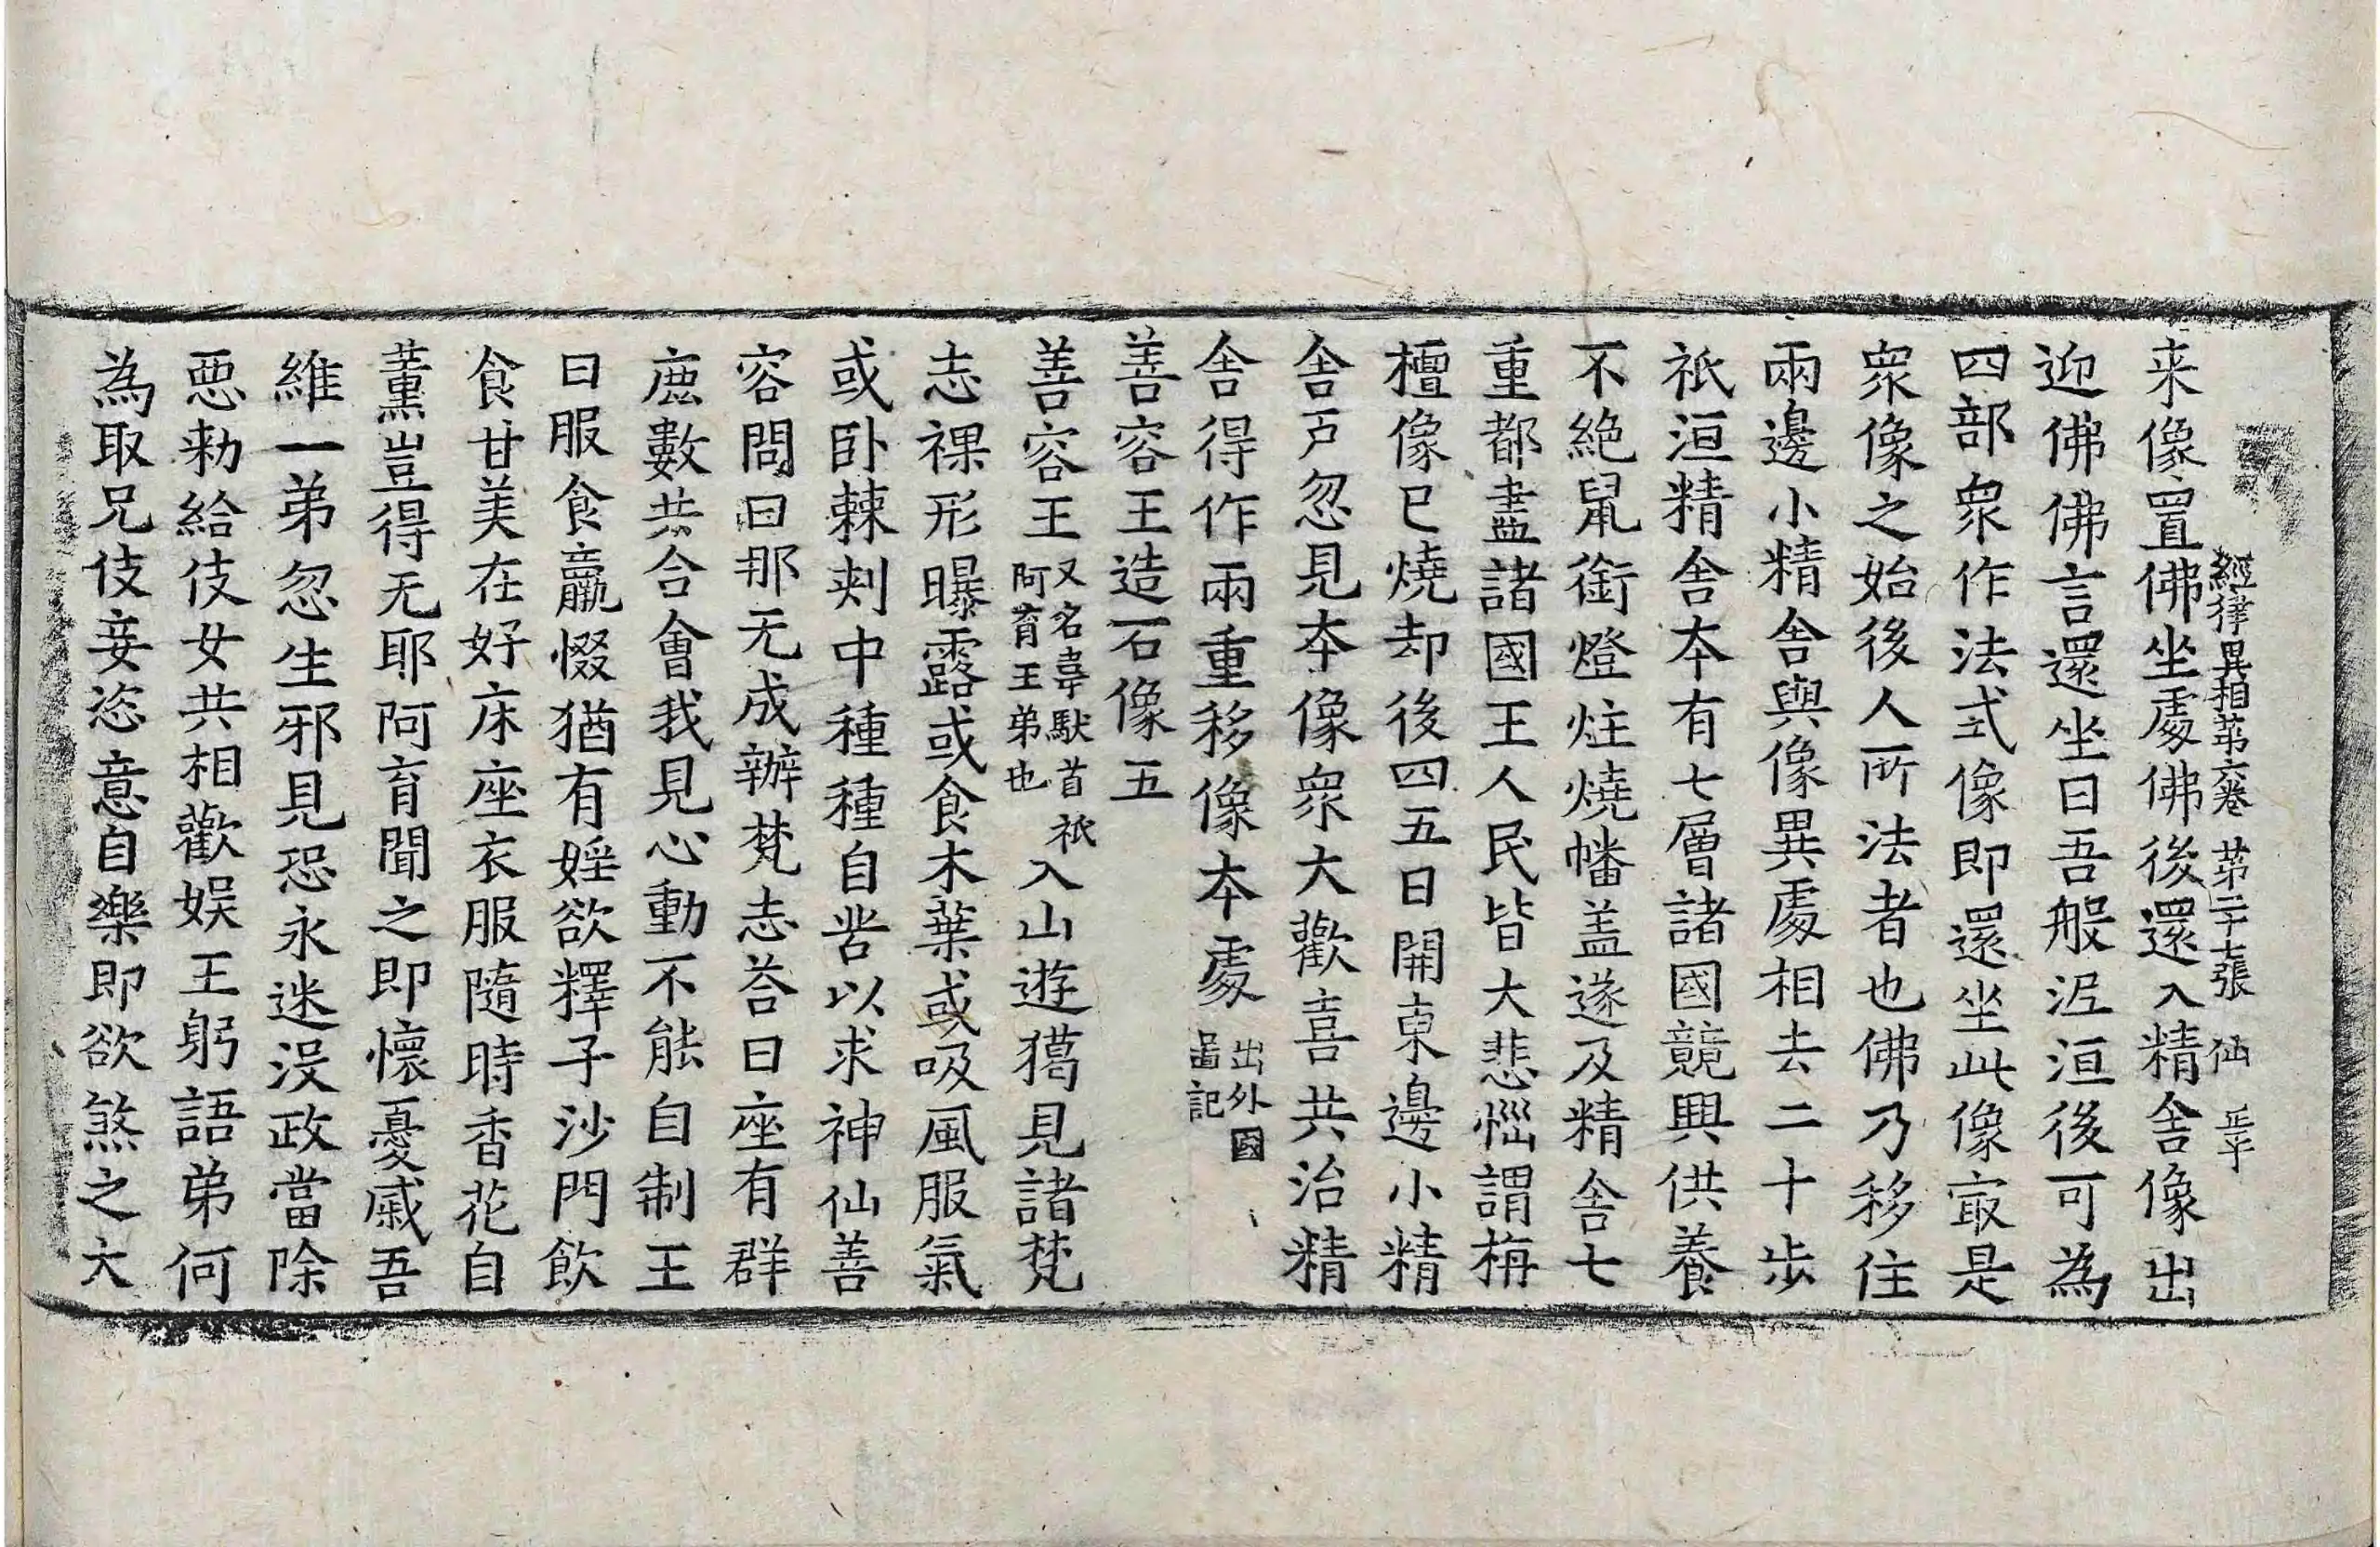 經律異相苐六卷 苐二十七張 仙 正平
来像置佛坐處佛後還入精舍像出
迎佛佛言還坐曰吾般泥洹後可為
四部衆作法式像即還坐此像㝡是
衆像之始後人所法者也佛乃移住
兩邊小精舍與像異處相去二十步
祇洹精舍夲有七層諸國競興供養
不絶鼠銜燈炷燒幡盖遂及精舍七
重都盡諸國王人民皆大悲惱謂栴
檀像已燒却後四五日開東邊小精
舍戶忽見夲像衆大歡喜共治精
舍得作兩重移像夲處出外國啚記
善容王造石像五
善容王又名韋馱首祇阿育王弟也入山遊獦見諸梵
志裸形曝露或食木葉或吸風服氣
或卧棘刾中種種自苦以求神仙善
容問曰那无成辦梵志荅曰座有群
鹿數共合會我見心動不能自制王
曰服食羸惙猶有婬欲釋子沙門飲
食甘美在好床座衣服隨時香花自
薰豈得无耶阿育聞之即懷憂慼吾
維一弟忽生邪見恐永迷沒政當除
惡勑給伎女共相歡娱王躬語弟何
為取兄伎妾恣意自樂即欲煞之大